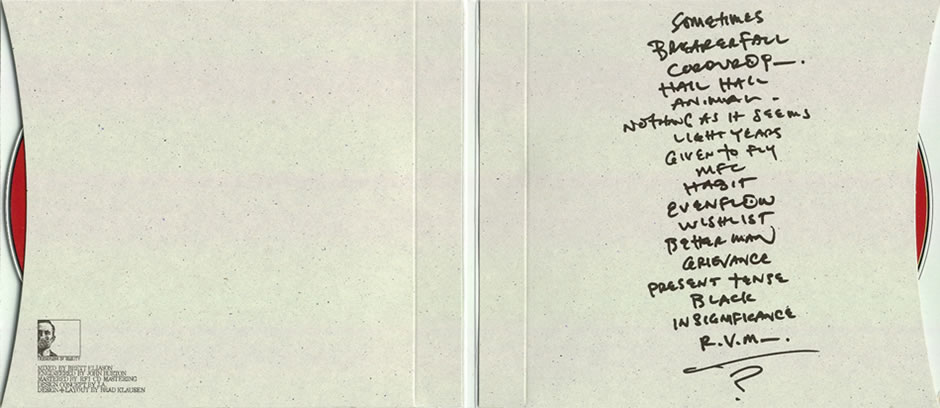 MIXED BY BRETT ELIASON
ENGINEERED BY JOHN BURTON
MASTERED BY RFI CD MASTERING
DESIGN CONCEPT BY J.A.
DESIGN + LAYOUT BY BRAD KLAUSEN
SOMETIMES
BREAKERFALL
CORDUROY—.
HAIL HAIL
ANIMAL -
NOTHING AS IT SEEMS
LIGHT YEARS
GIVEN TO FLY
MFC
HABIT
EVENFLOW
WISHLIST
BETTER MAN
GRIEVANCE
PRESENT TENSE
BLACK
INSIGNIFICANCE
R.V.M—.
?